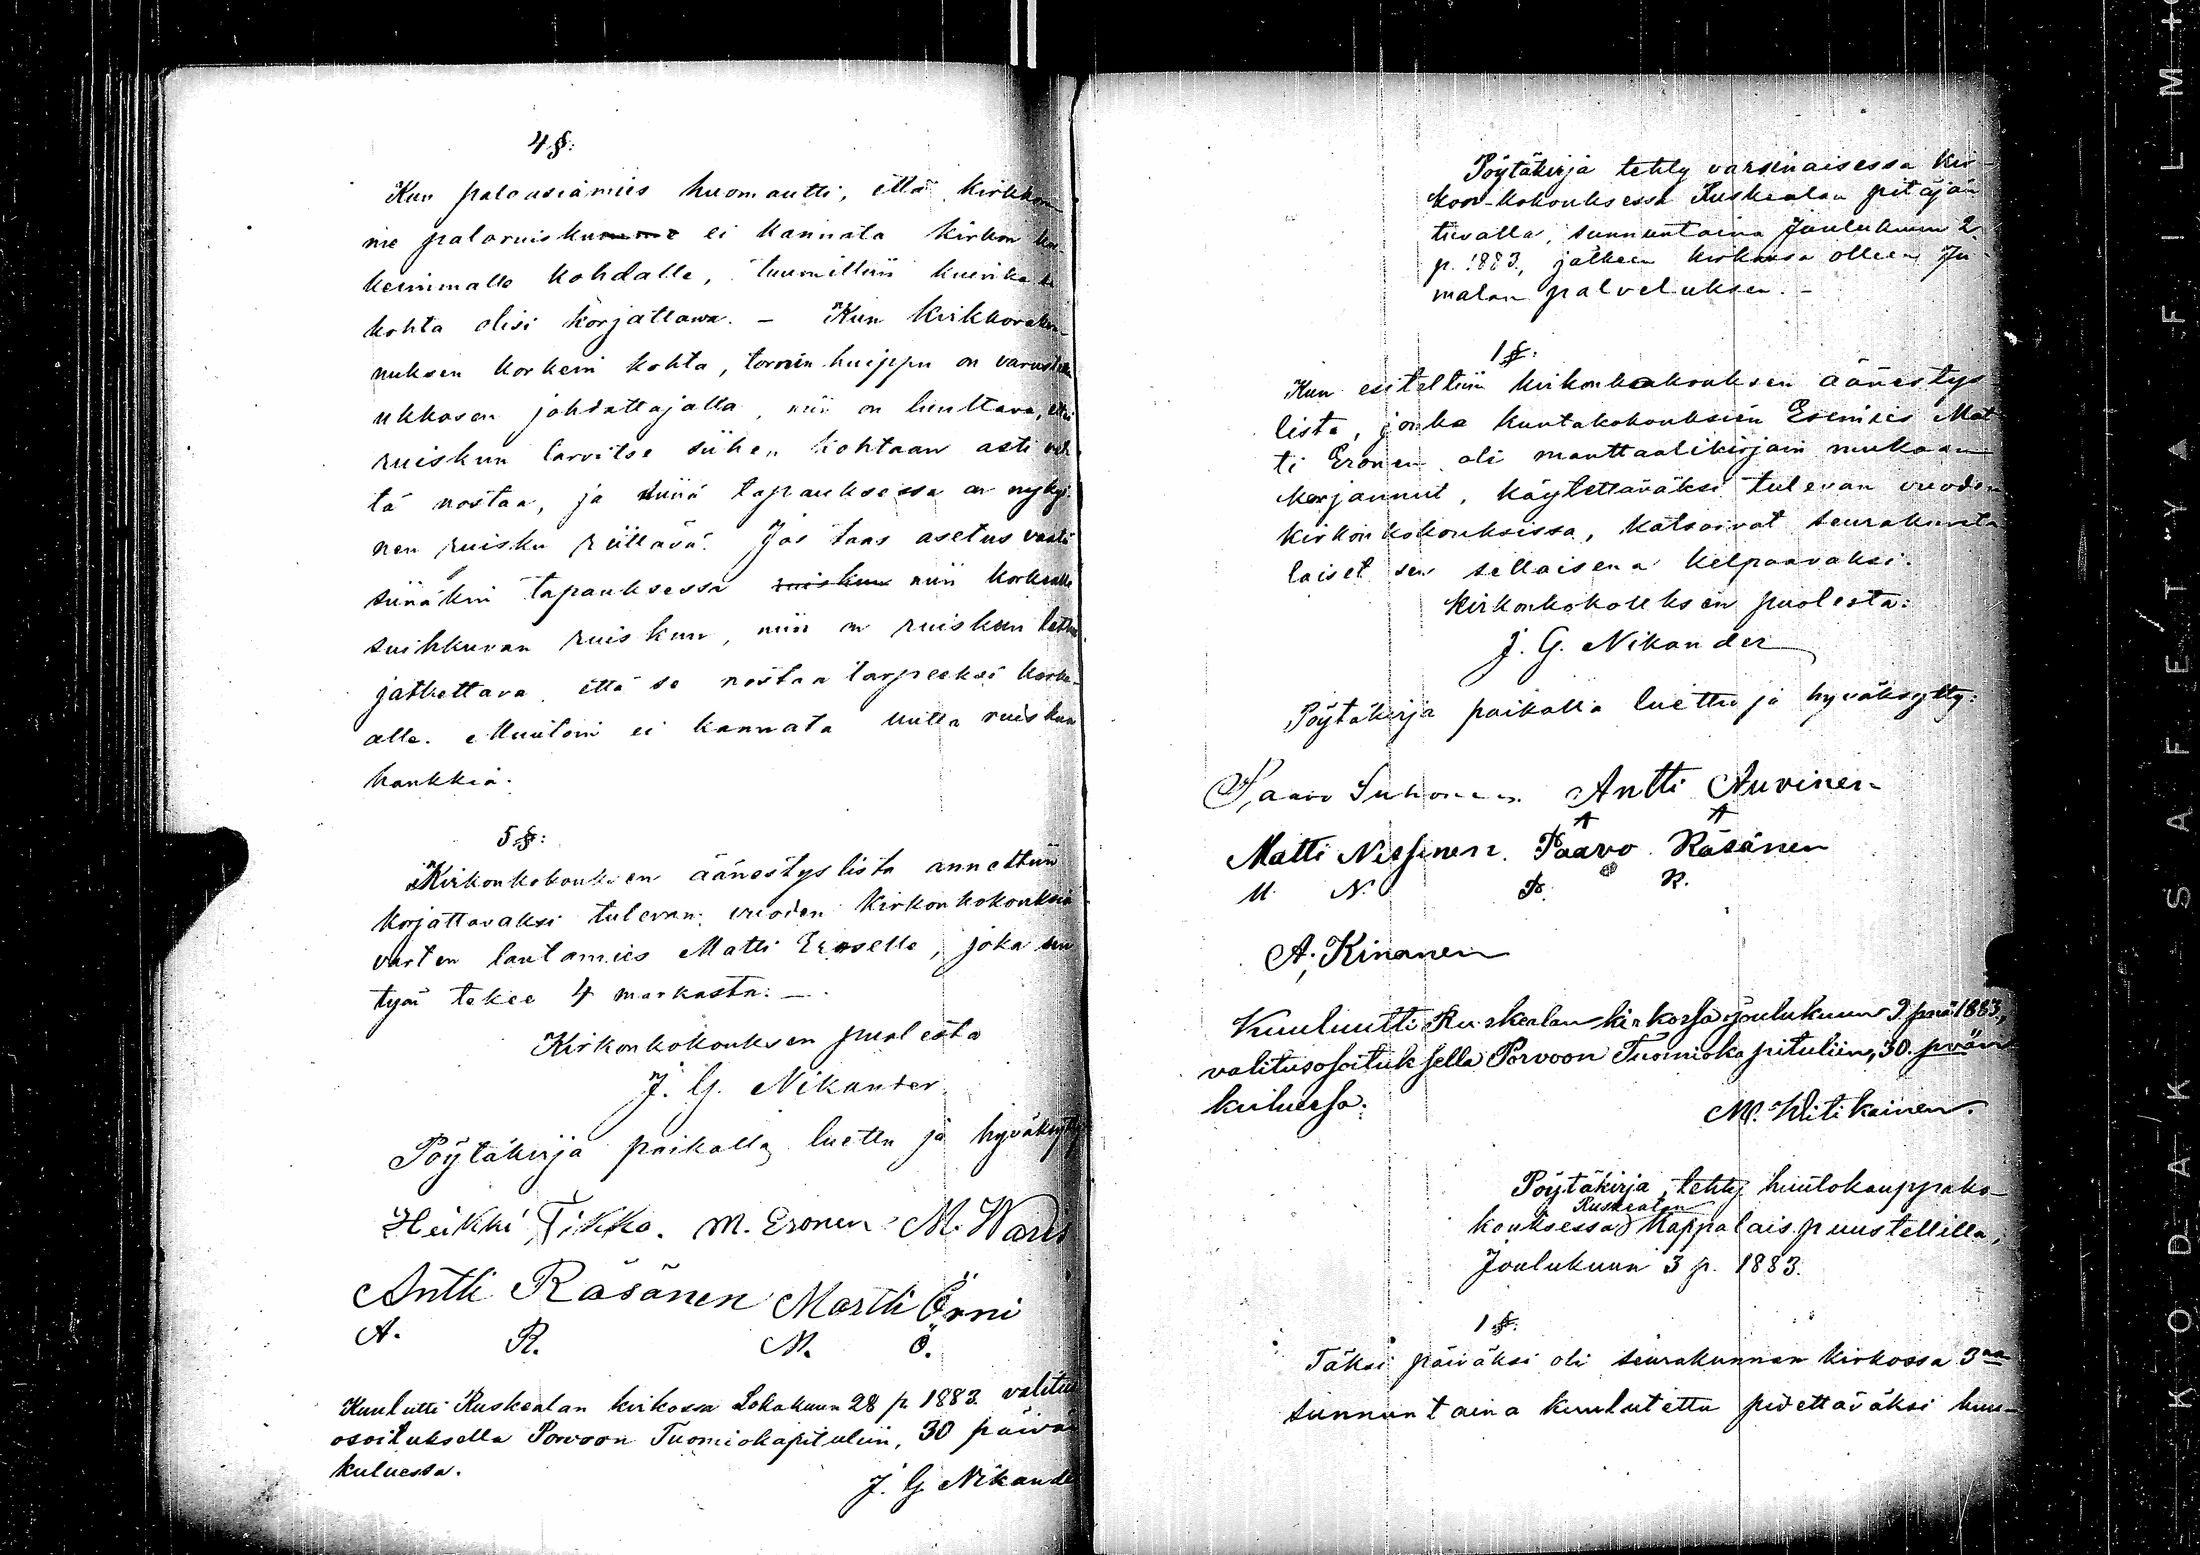 4 §:
Kun paloasiamies huomautti, että kirkkom
me paloruisku ei kannata kirkon kor
keimmalle kohdalle, tuumittiin kuinka se
kohta olisi korjattava. – Kun kirkkoraken-
nuksen korkein kohta, tornin huippu on varustettu
ukkosen johdattajalla, niin on luultava, ettei
ruiskun tarvitse siihen kohtaan asti vet-
tä nostaa, ja siinä tapauksessa on nyky-
nen ruisku riittävä. Jos taas asetus vaatii
siinäkin tapauksessa ruiskun niin korkealle
suihkuvan ruiskun, niin on ruiskun letku
jatkettava että se nostaa tarpeeksi korke-
alle. Muutoin ei kannata uutta ruiskua
hankkia.
5 §:
Kirkonkokouksen äänestyslista annettiin
korjattavaksi tulevan vuoden kirkonkokouksia
varten lautamies Matti Eroselle, joka sen
työn tekee 4 markasta. –
Kirkonkokouksen puolesta
J. G. Nikander.
Pöytäkirja paikalla luettu ja hyväksytty
Heikki Tikka. M. Eronen M. Waris
Antti Räsänen Martti Örni
A. R. M. Ö.
Kuulutti Ruskealan kirkossa Lokakuun 28 p. 1883 valitus
osoituksella Porvoon Tuomiokapituliin, 30 päivän
kuluessa.
J. G Nikander
Pöytäkirja tehty varsinaisessa kir-
kon-kokouksessa Ruskealan pitäjän
tuvalla, sunnuntaina Joulukuun 2
p. 1883, jälkeen kirkossa olleen Ju-
malan palveluksen. –
1 §:
Kun esiteltiin kirkonkokouksen äänestys
lista, jonka kuntakokouksien Esimies Mat
ti Eronen oli manttaalikirjain mukaan
korjannut, käytettäväksi tulevan vuoden
kirkonkokouksissa, katsoivat seurakunta
laiset sen sellaisena kelpaavaksi.
Kirkonkokouksen puolesta:
J. G. Nikander
Pöytäkirja paikalla luettu ja hyväksytty:
Paavo Suhonen Antti Auvinen
A A
Matti Nissinen. Paavo Räsänen
M. N. P. R.
A. Kinanen
Kuulutti Ruskealan kirkossa joulukuun 9 pnä 1883,
valitusosoituksella Porvoon Tuomiokapituliin, 30. pvän
kuluessa.
M. Witikainen.
Pöytäkirja, tehty huutokauppako-
Ruskealan
kouksessa Kappalais.puustellilla,
Joulukuun 3 p. 1883.
1 §:
Täksi päiväksi oli seurakunnan kirkossa 3na
sunnuntaina kuulutettu pidettäväksi huu-
KODAK SAFETY FILM